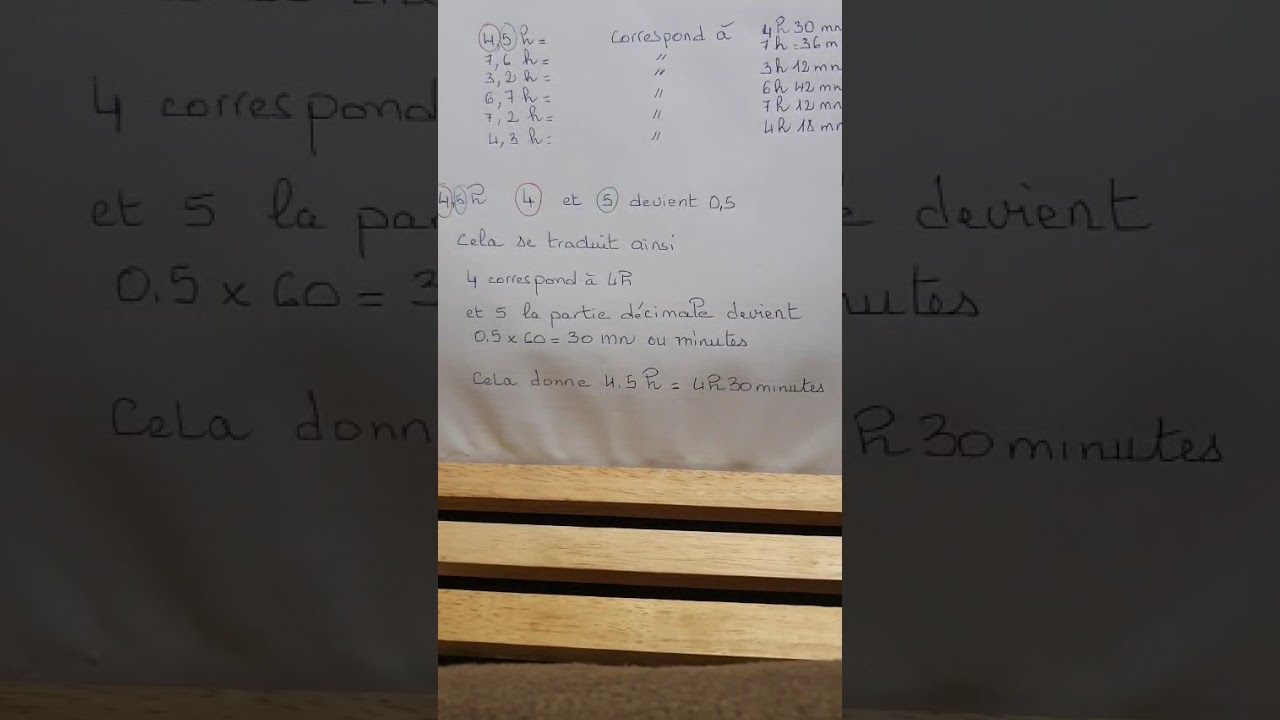 4,5 h = correspond à 4h 30 mn
7,6 h = " 7h = 36 m
3,2 h = " 3h 12 mn
6,7 h = " 6h 42 mn
7,2 h = " 7h 12 mn
4,3 h = " 4h 18 mn
4,5h 4 et 5 devient 0,5
Cela se traduit ainsi
4 correspond à 4h
et 5 la partie décimale devient
0.5 x 60 = 30 mn ou minutes
Cela donne 4.5 h = 4h 30 minutes